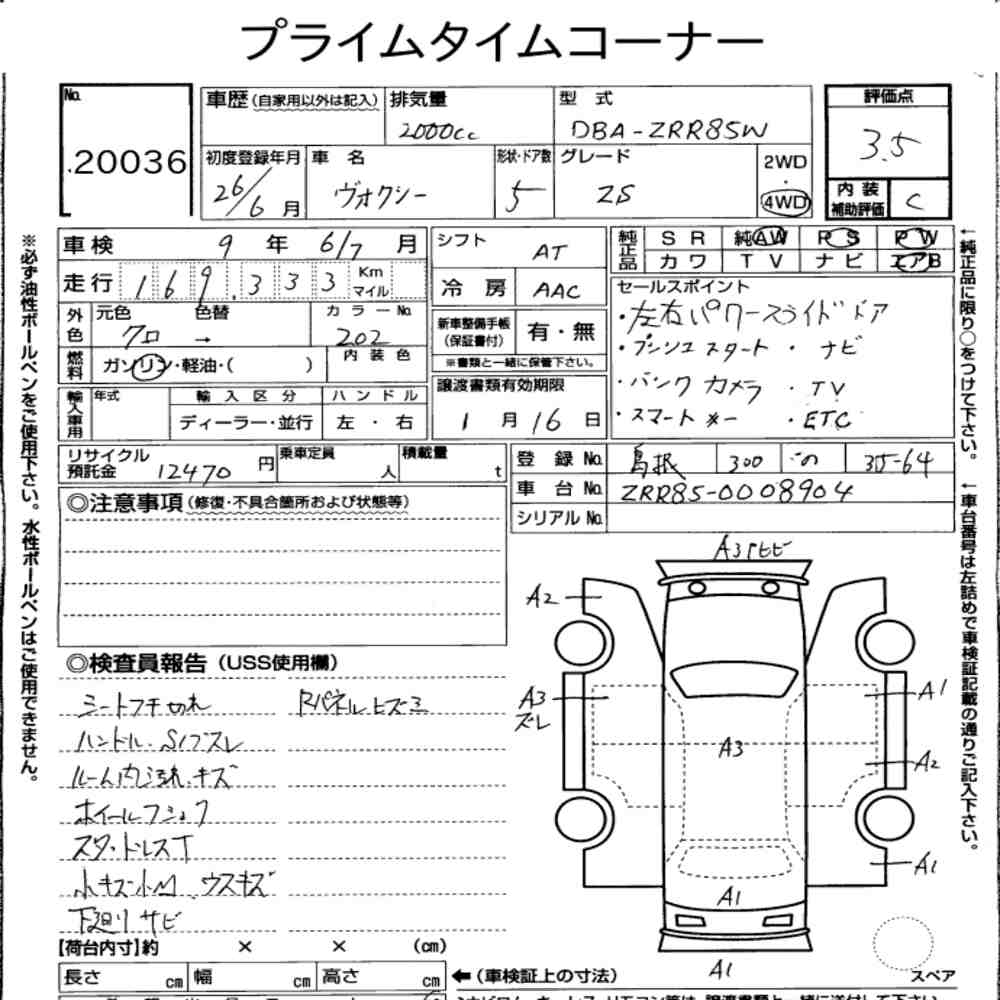 プライムタイムコーナー
No. 20036
車歴(自家用以外は記入) 排気量 2000cc
型式 DBA-ZRR85W
評価点 3.5
初度登録年月 26/6月
車名 ヴォクシー
形状・ドア数 5
グレード ZS
2WD・4WD
内装補助評価 C
車検 9年 6/7月
走行 169.333 Km マイル
外色 元色 クロ 色替 → カラーNo. 202
燃料 ガソリン・軽油・( ) 内装色
輸入車用 年式 輸入区分 ディーラー・並行 ハンドル 左・右
シフト AT
冷房 AAC
新車整備手帳(保証書付) 有・無
※書類と一緒に保管下さい。
譲渡書類有効期限
1月16日
純正品 SR 純AW PS PW
カワ TV ナビ エアB
セールスポイント
・左右パワースライドドア
・プッシュスタート ・ナビ
・バックカメラ ・TV
・スマートキー ・ETC
リサイクル預託金 12470円 乗車定員 人 積載量 t
登録No. 島根 300 35-64
車台No. ZRR85-0008904
シリアルNo.
◎注意事項(修復・不具合箇所および状態等)
◎検査員報告(USS使用欄)
シートフチ切れ Rパネルヒズミ
ハンドル・S/ブスレ
ルーム内汚れ・キズ
ホイールフショク
スタッドレスT
小キズ小凹 ウスキズ
下廻りサビ
A3 トビ
A2
A3
ズレ
A1
A3
A2
A1
A1
A1
スペア
【荷台内寸】約 × × (cm)
長さ cm 幅 cm 高さ cm ←(車検証上の寸法)
※必ず油性ボールペンをご使用下さい。水性ボールペンはご使用できません。
←純正品に限り○をつけて下さい。
←車台番号は左詰めで車検証記載の通りご記入下さい。